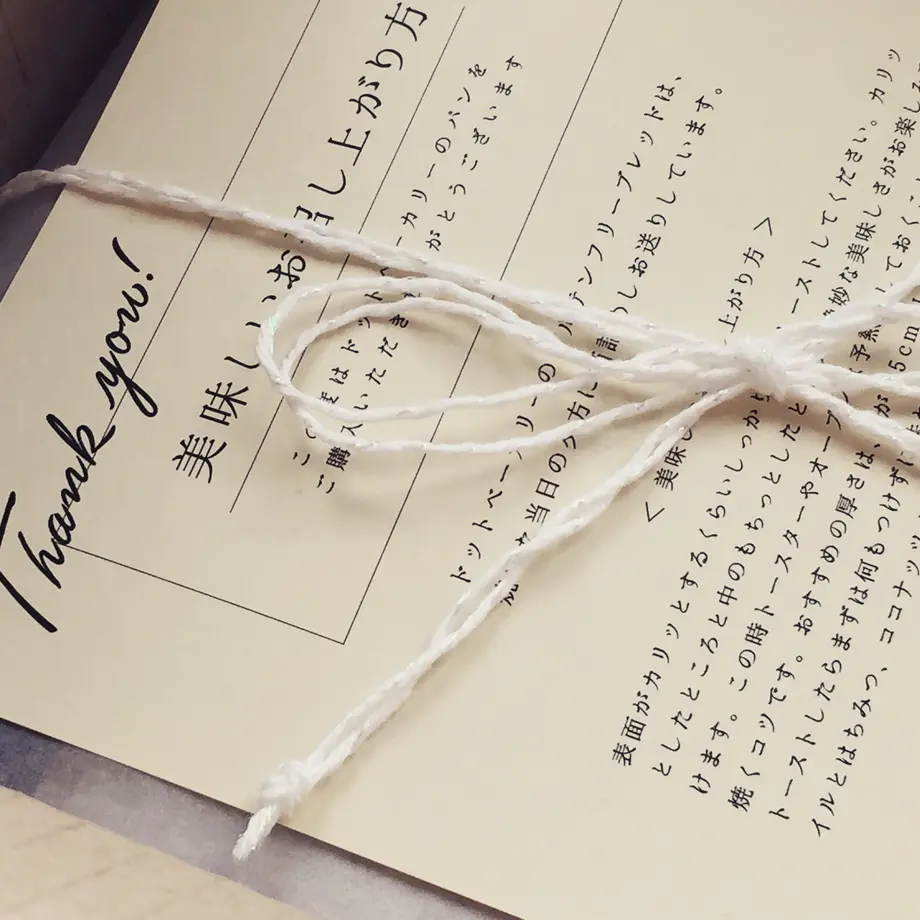 Thank you!
美味しいお召し上がり方
この はドットベーカリーのパンを
ご購入いただき がとうございます
ドットベーカリーの テンフリーブレッドは、
当日の夕方に しお送りしています。
< 美味し 上がり方 >
表面がカリッとするくらいしっかり トーストしてください。カリッ
としたところと中のもちっとした 妙な美味しさがお楽し
けます。この時トースターやオーブン 予熱 ておく
焼くコツです。おすすめの厚さは、 が 5cm
トーストしたらまずは何もつけずに
イルとはちみつ、ココナッツ